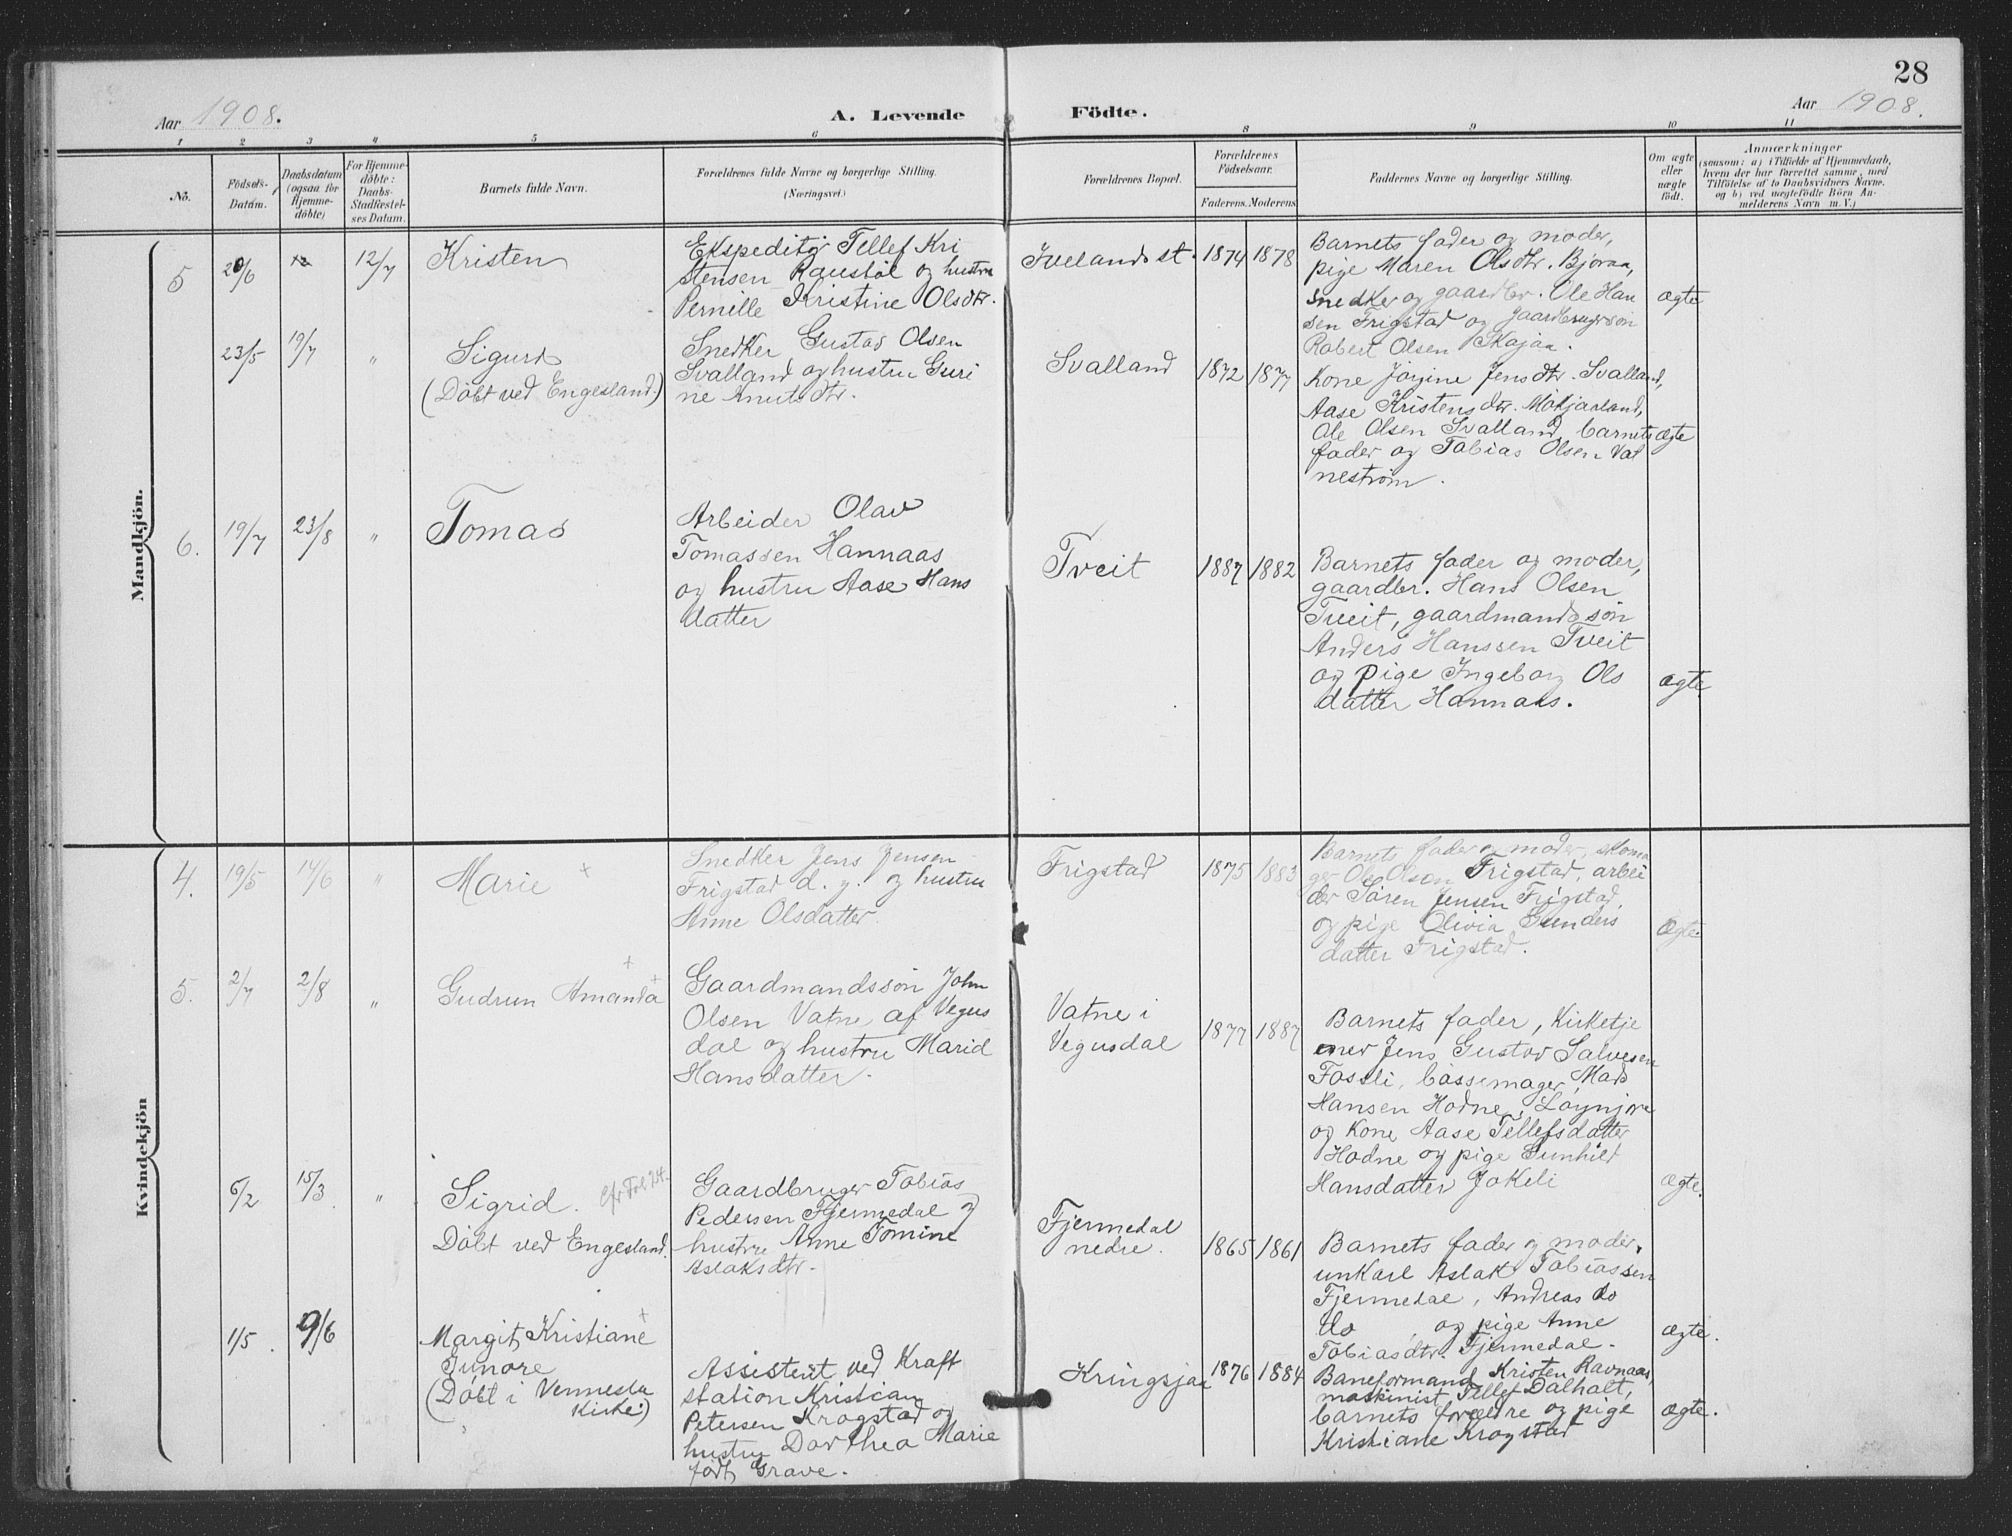 28
Aar 1908.
A. Levende
Födte.
Aar 1908.
1 2 3 4 5 6 8 9 10 11
No.
Födsels-
Datum.
Daabsdatum
(ogsaa for
Hjemme-
döbte)
For Hjemme-
döbte:
Daabs-
Stadfæstel-
ses Datum.
Barnets fulde Navn.
Forældrenes fulde Navne og borgerlige Stilling.
(Næringsvei.)
Forældrenes Bopæl.
Forældrenes
Födselsaar.
Faderens. Moderens.
Faddernes Navne og borgerlige Stilling.
Om ægte
eller
uægte
födt.
Anmærkninger
(saasom: a) i Tilfælde af Hjemmedaab,
hvem der har forrettet samme, med
Tilföielse af to Daabsvidners Navne,
og b) ved uægtefödte Börn An-
melderens Navn m. V.)
Mandkjön.
5 20/6 12/7 Kristen
Ekspeditør Tellef Kri
stensen Raustøl og hustru
Pernille Kristine Olsdtr.
Ivelands st. 1874 1878
Barnets fader og moder,
pige Maren Olsdtr. Bjoraa,
snedker og gaardbr. Ole Han
sen Frigstad og gaardbrugersøn
Robert Olsen Skajaa.
ægte
23/5 19/7 " Sigurd
(Døbt ved Engesland.)
Snedker Gustav Olsen
Svalland og hustru Guri
ne Knutsdtr.
Svalland 1872 1877
Kone Jørgine Jensdtr. Svalland,
Aase Kristensdtr. Mokjaaland,
Ole Olsen Svalland, barnets
fader og Tobias Olsen Vat
nestrøm.
ægte
6. 19/7 23/8 " Tomas
Arbeider Olav
Tomassen Hannaas
og hustru Aase Hans
datter
Tveit 1887 1882
Barnets fader og moder,
gaardbr. Hans Olsen
Tveit, gaardmandssøn
Anders Hanssen Tveit
og pige Ingeborg Ols
datter Hannaas.
ægte
Kvindekjön
4. 19/5 14/6 " Marie +
Snedker Jens Jensen
Frigstad d. y. og hustru
Anne Olsdatter.
Frigstad 1875 1883
Barnets fader og moder, skoma
ger Ole Olsen Frigstad, arbei
der Søren Jensen Frigstad,
og pige Olivia Gunders
datter Frigstad.
ægte.
5. 2/7 2/8 " Gudrun Amanda + +
Gaardmandssøn John
Olsen Vatne af Vegus
dal og hustru Marid
Hansdatter.
Vatne i
Vegusdal
1877 1887
Barnets fader, Kirketje
ner Jens Gustav Salvesen
Fossli, bøssemager Mads
Hansen Hodne,
og Kone Aase Tellefsdatter
Hodne og pige Gunhild
Hansdatter Jokeli
ægte.
6/2 15/3 " Sigrid. cfr Fol 24.
Døbt ved Engesland.
Gaardbruger Tobias
Pedersen Fjermedal og
hustru Anne Tomine
Aslaksdtr.
Fjermedal
nedre.
1865 1861
Barnets fader og moder,
unkarl Aslak Tobiassen
Fjermedal, Andreas do
do og pige Anne
Tobiasdtr. Fjermedal.
ægte.
1/5. 9/6 Margit Kristiane +
Gunore
(Døbt i Vennesla
Kirke.)
Assistent ved Kraft
station Kristian
Petersen Krogstad og
hustru Dorthea Marie
født Grave.
Kringsjaa 1876 1884
Baneformand Kristen Ravnaas,
maskinist Tellef Dalholt,
barnets forældre og pige
Kristiane Krogstad
ægte.